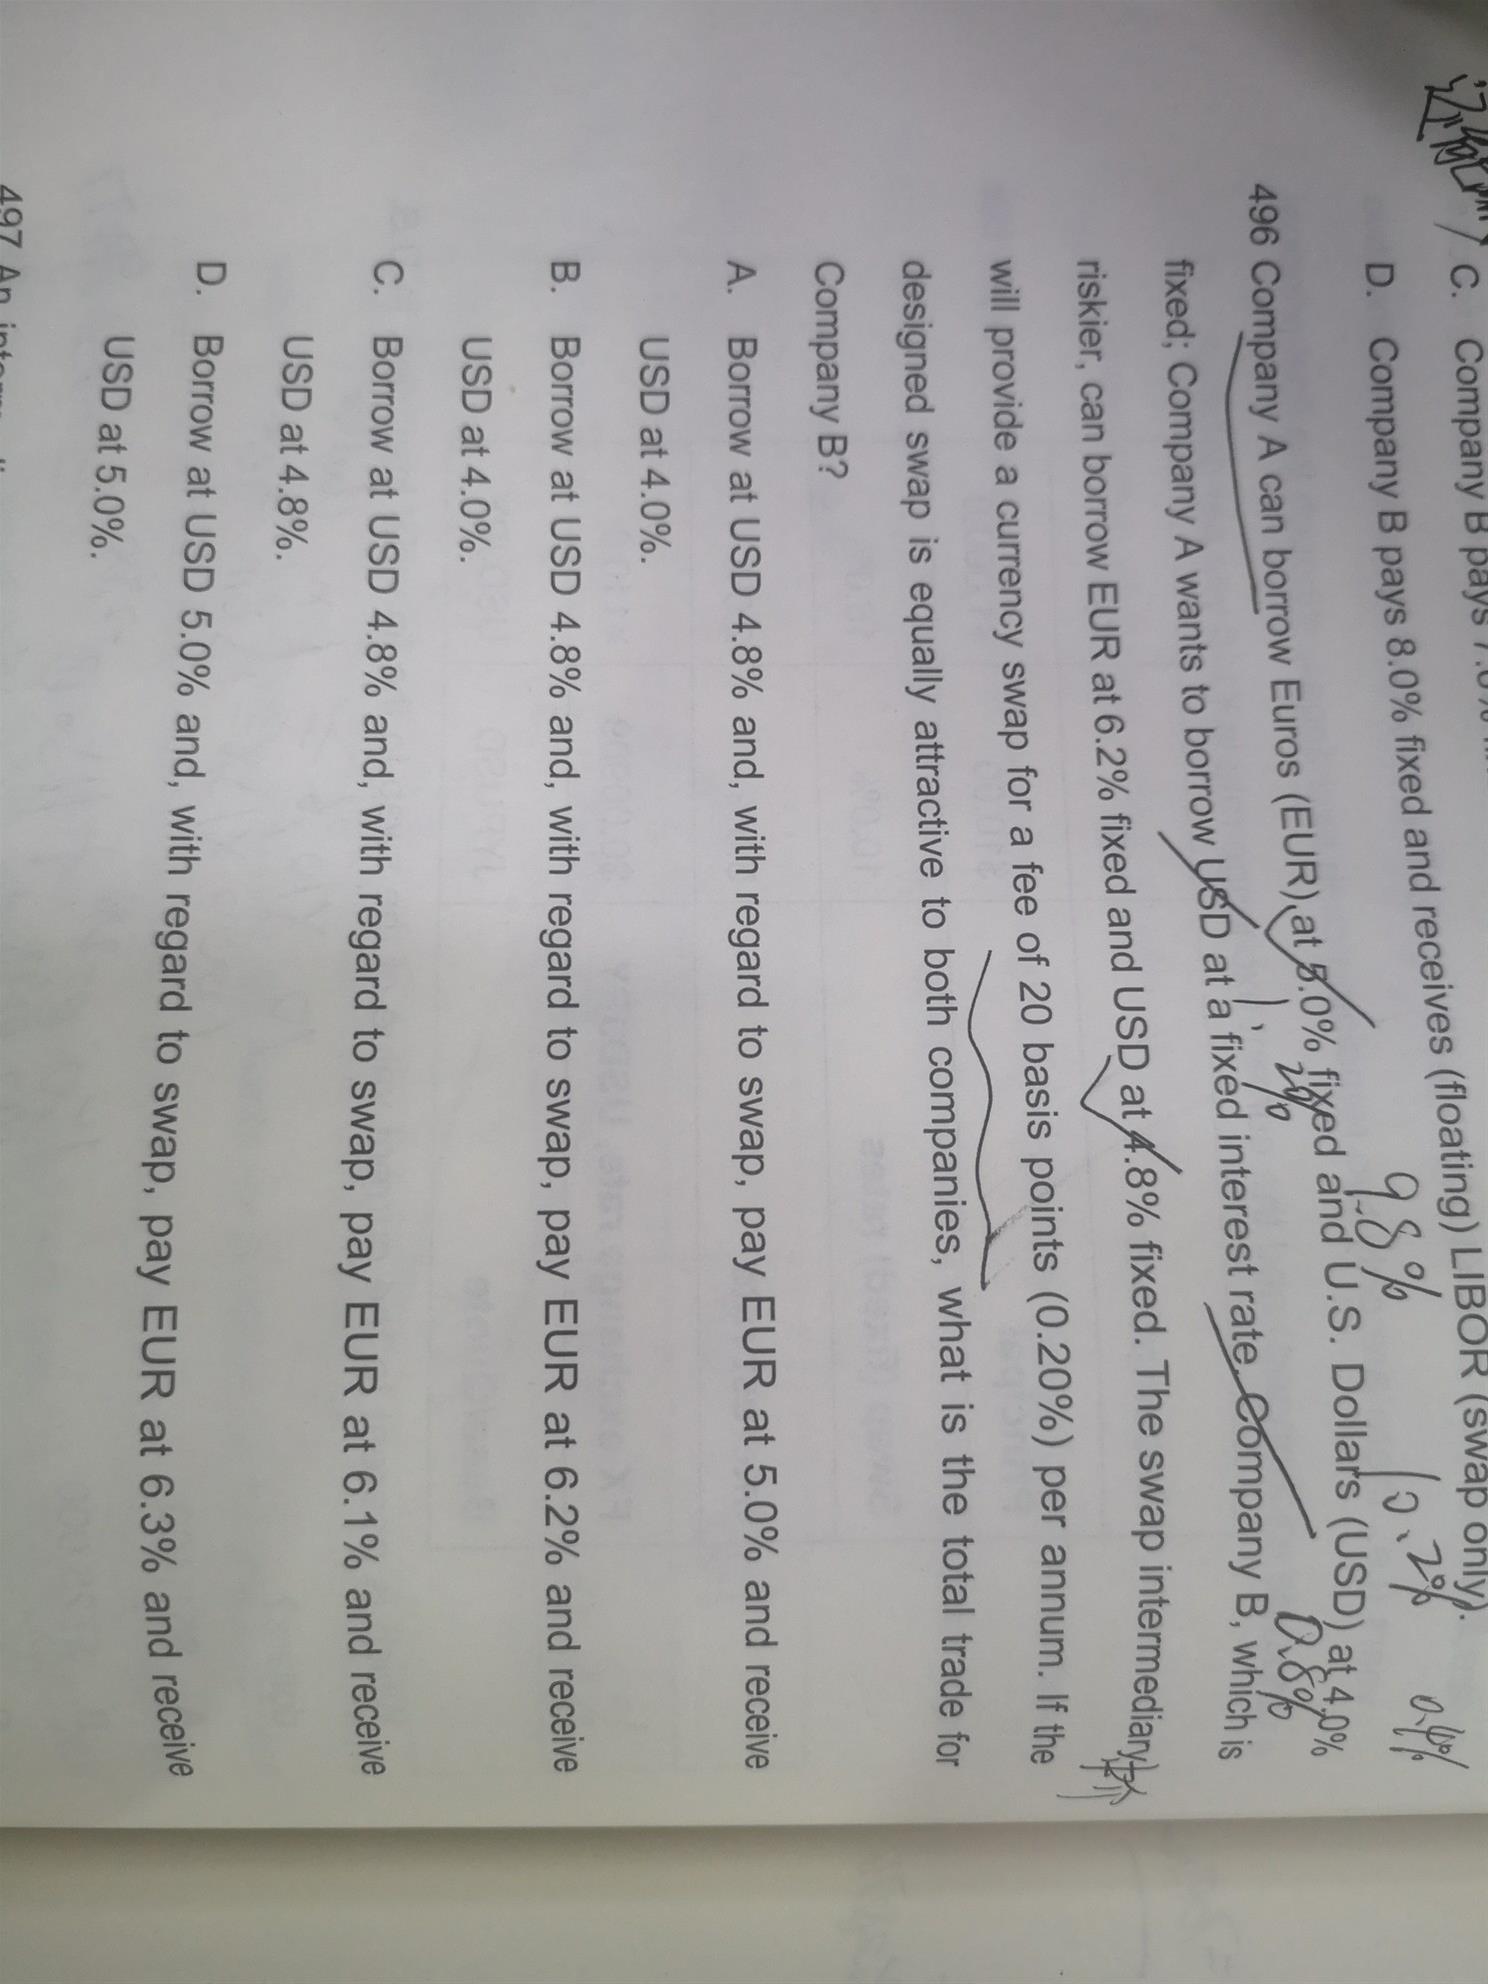 C. Company B pays 7.0%
D. Company B pays 8.0% fixed and receives (floating) LIBOR (swap only).
9.8% 10.2% 0.4%
496 Company A can borrow Euros (EUR) at 5.0% fixed and U.S. Dollars (USD) at 4.0%
1.2% 0.8%
fixed; Company A wants to borrow USD at a fixed interest rate. Company B, which is
riskier, can borrow EUR at 6.2% fixed and USD at 4.8% fixed. The swap intermediary
will provide a currency swap for a fee of 20 basis points (0.20%) per annum. If the
designed swap is equally attractive to both companies, what is the total trade for
Company B?
A. Borrow at USD 4.8% and, with regard to swap, pay EUR at 5.0% and receive
USD at 4.0%.
B. Borrow at USD 4.8% and, with regard to swap, pay EUR at 6.2% and receive
USD at 4.0%.
C. Borrow at USD 4.8% and, with regard to swap, pay EUR at 6.1% and receive
USD at 4.8%.
D. Borrow at USD 5.0% and, with regard to swap, pay EUR at 6.3% and receive
USD at 5.0%.
497 An